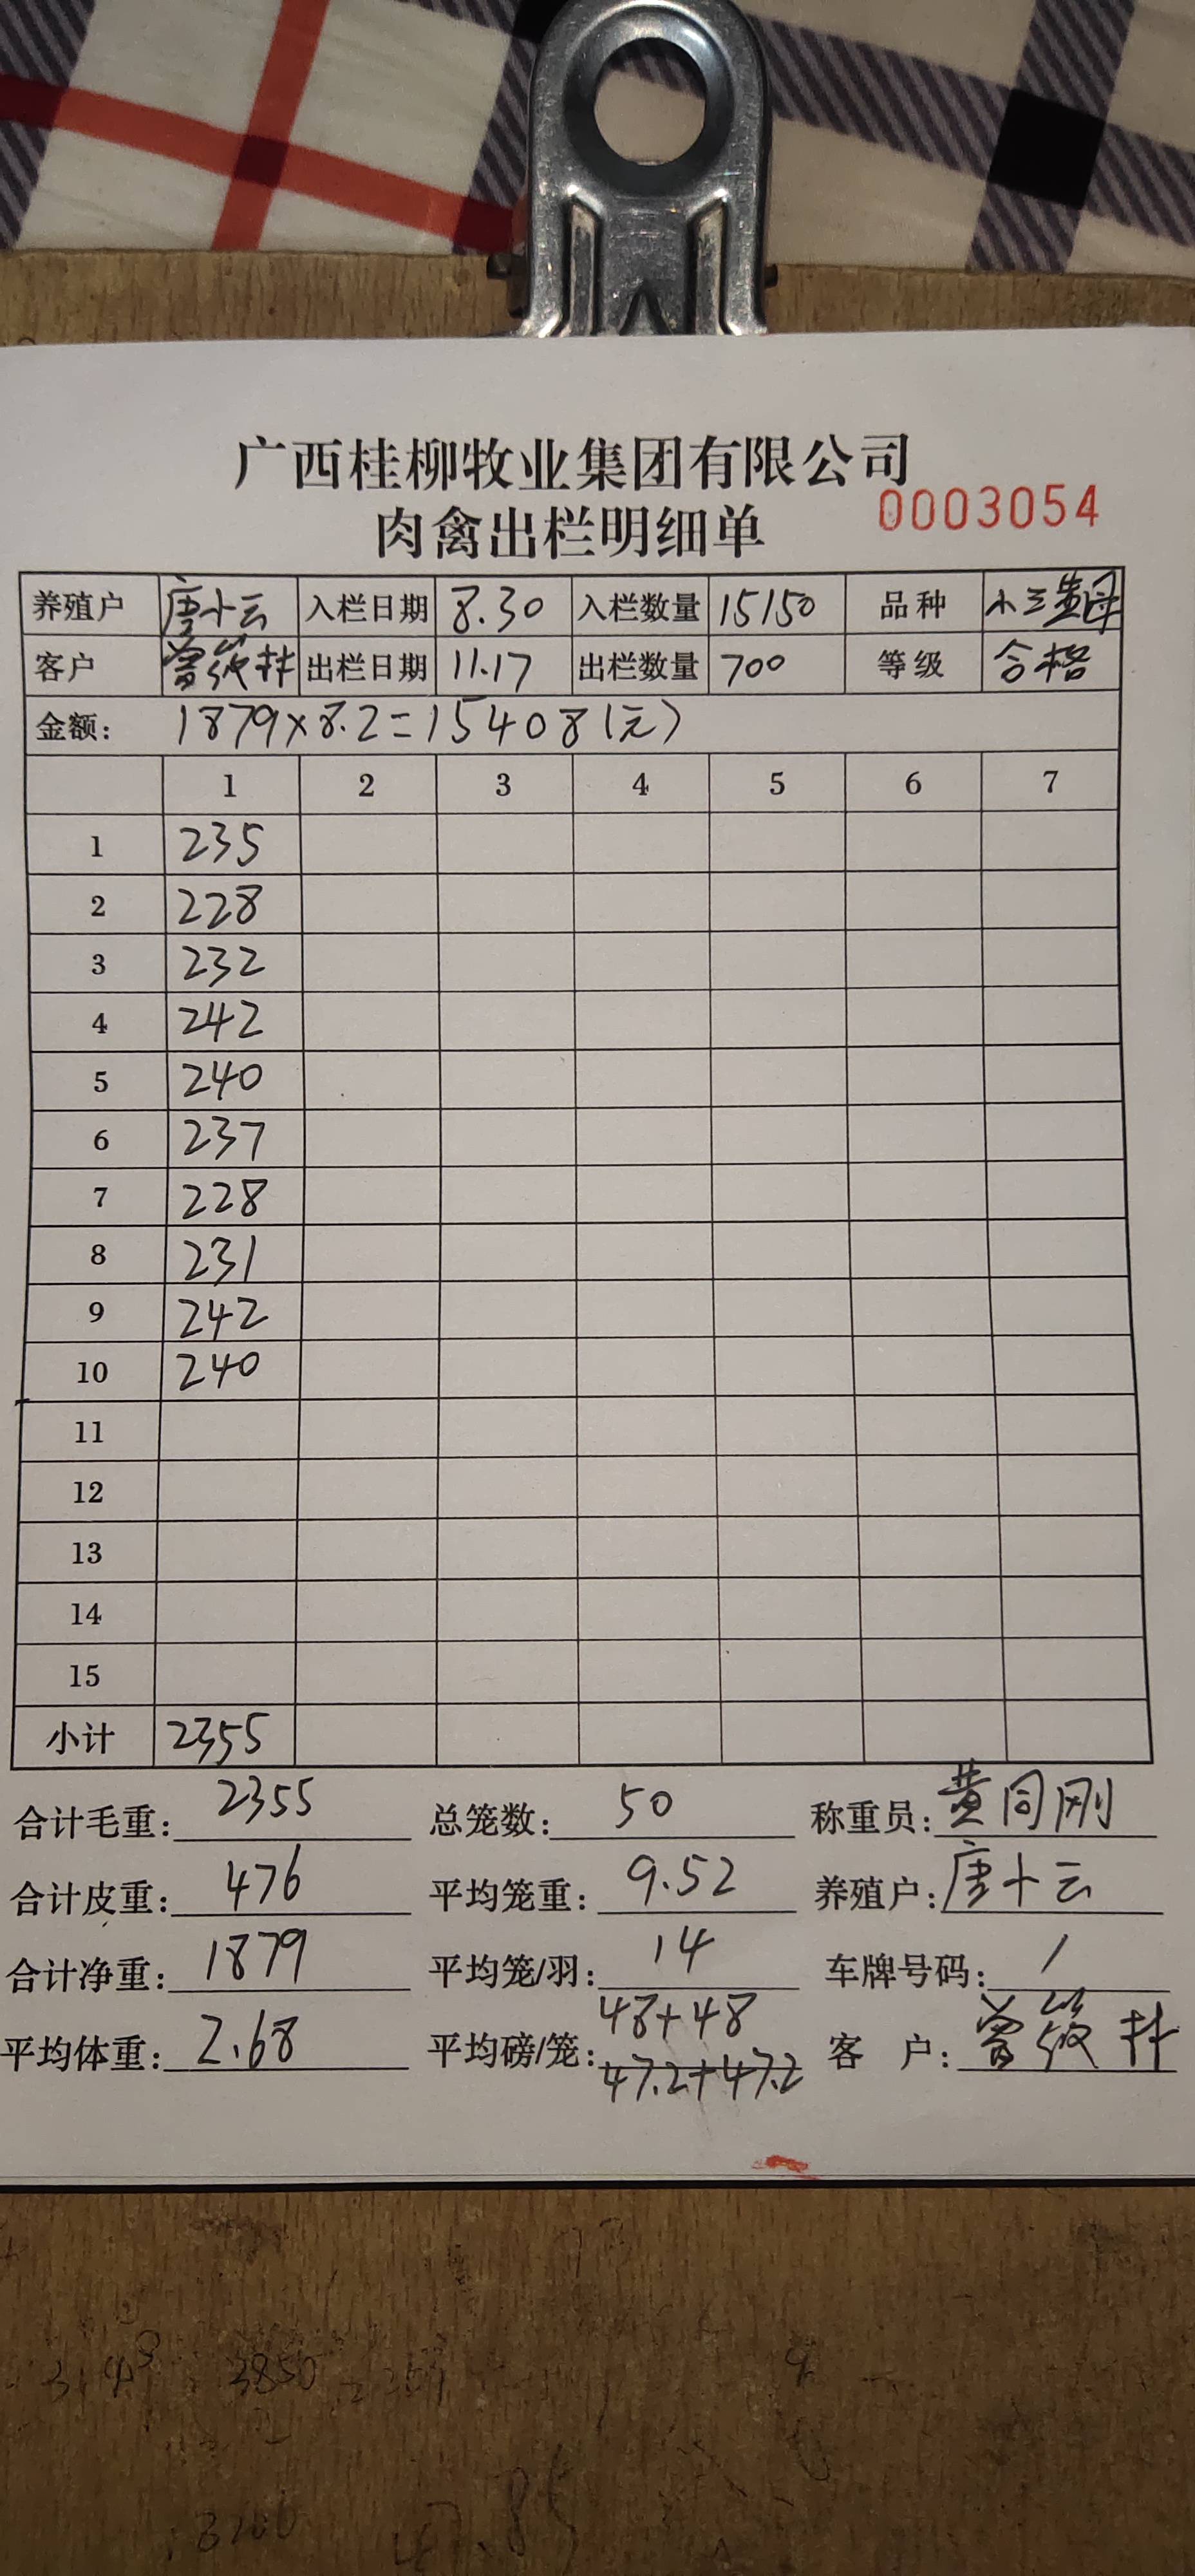 广西桂柳牧业集团有限公司
肉禽出栏明细单
0003054
养殖户 唐小云 入栏日期 8.30 入栏数量 15150 品种 小三黄母
客户 曾筱林 出栏日期 11.17 出栏数量 700 等级 合格
金额: 1879×8.2=15408(元)
1 2 3 4 5 6 7
1 235
2 228
3 232
4 242
5 240
6 237
7 228
8 231
9 242
10 240
11
12
13
14
15
小计 2355
合计毛重: 2355 总笼数: 50 称重员: 黄同刚
合计皮重: 476 平均笼重: 9.52 养殖户: 唐小云
合计净重: 1879 平均笼/羽: 14 车牌号码: /
平均体重: 2.68 平均磅/笼: 48+48 客 户: 曾筱林
47.2+47.2
3850